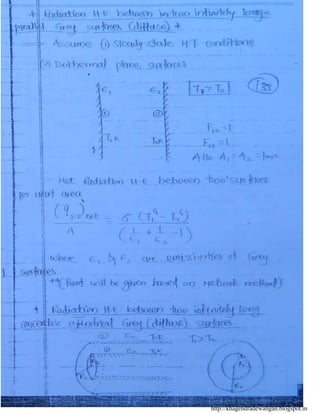 * Radiation H.E between in two infinitely large
parallel Grey surfaces (diffuse) *
Assume (1) Steady state H.T conditions
(2) Isothermal plane surfaces
ε₁ ε₂ T₁ > T₂
① ②
T₁ K T₂ K
F₁₂ = 1
F₂₁ = 1
Also A₁ = A₂ =
Net Radiation H.E between two surfaces
per unit area
(q₁₋₂)net / A = σ (T₁⁴ - T₂⁴) / (1/ε₁ + 1/ε₂ - 1)
where ε₁ & ε₂ are emissivities of Grey
surfaces
**(Proof will be given based on Network method)
* Radiation H.E between two infinitely long
concentric cylindrical Grey (diffuse) surfaces
② ε₂ T₂ K T₁ > T₂
① ε₁ T₁ K
http://khagendradewangan.blogspot.in